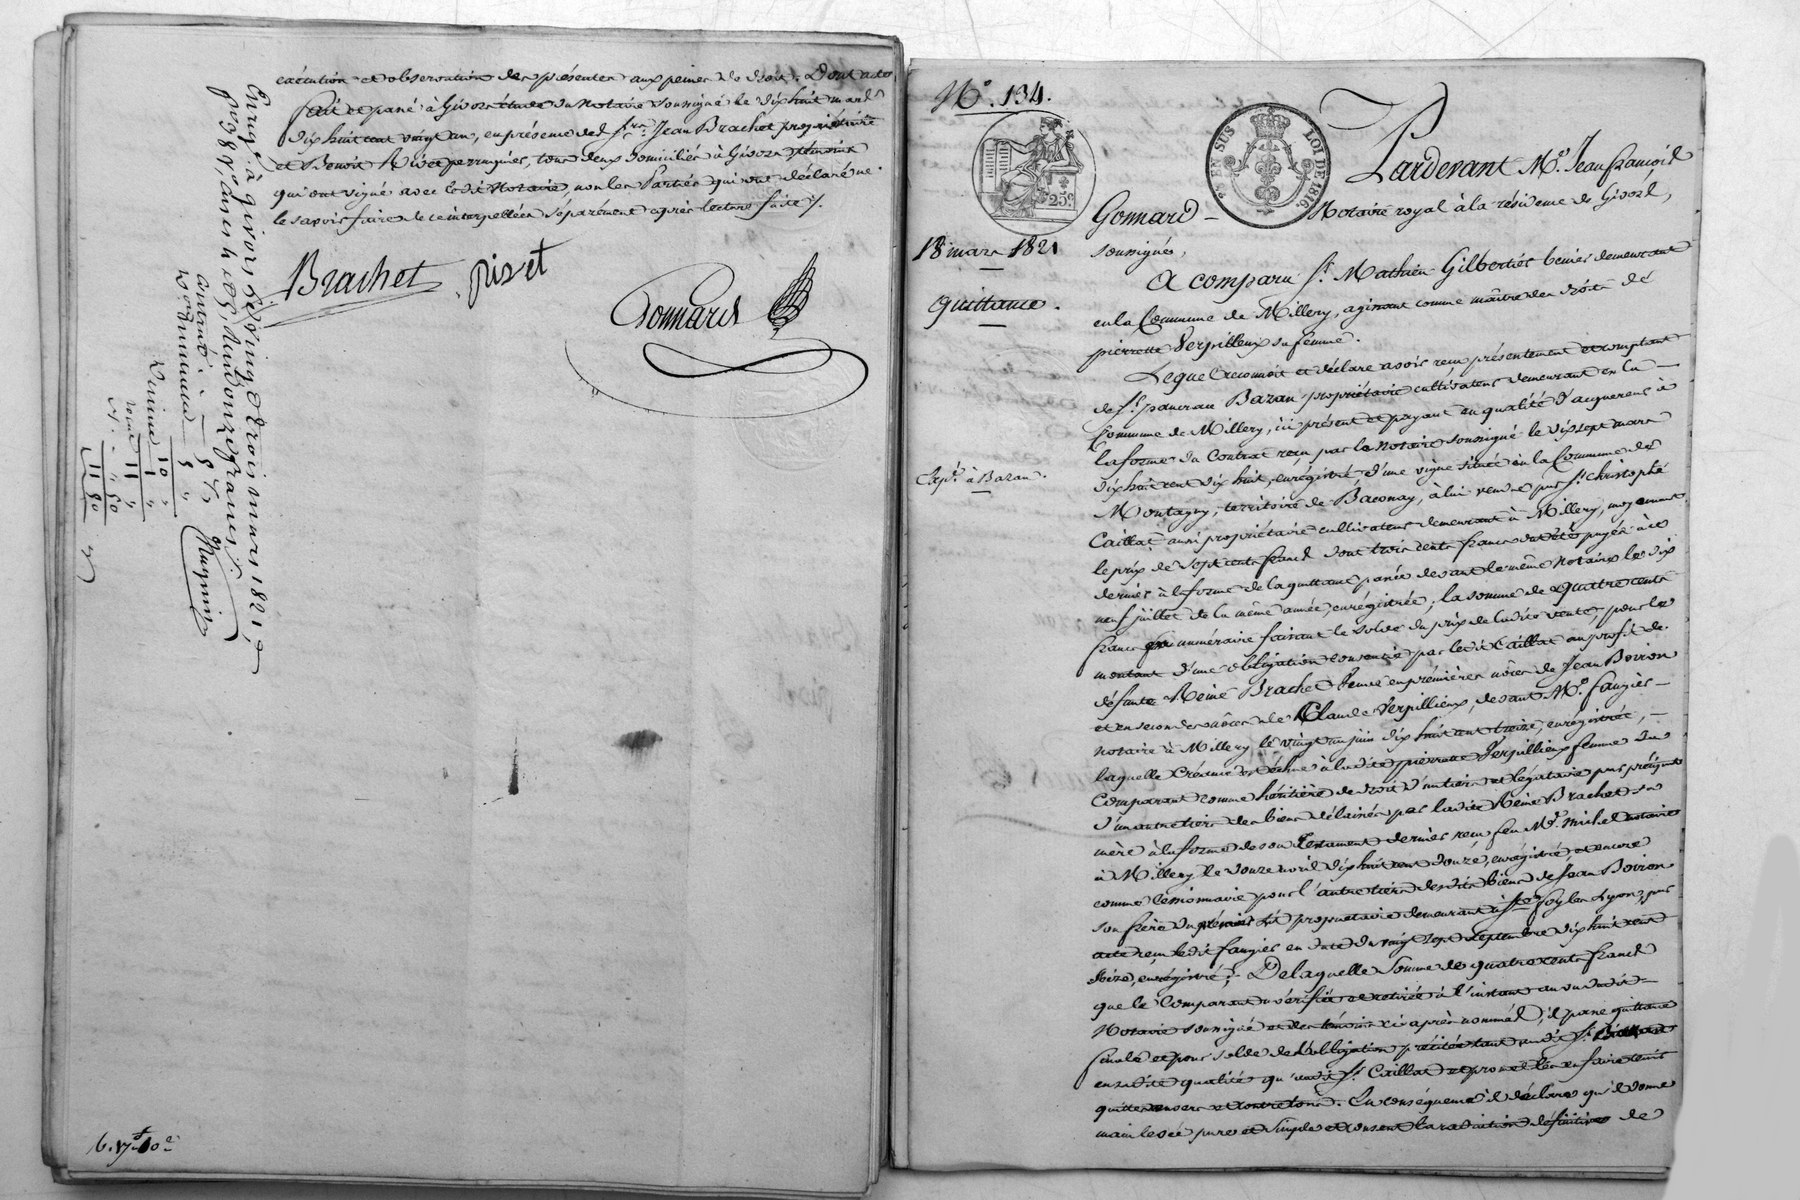 exécution et observation des présentes aux peines de droit. Dont acte
fait et passé à Givors étude du Notaire soussigné le dix huit mars
dix huit cent vingt un, en présence des srs. Jean Brachet propriétaire
et Benoit Rivet perruquier, tous deux domiciliés à Givors témoins
qui ont signé avec ledit Notaire, non les Parties qui ont déclaré ne
le savoir faire de ce interpellées séparément après lecture faite /.
Brachet
Rivet
Gonnard
Enregé. à givors le vingt trois mars 1821
dixième
11 80
N°. 134.
25c
EN SUS
LOI DE 1816.
18 mars 1821
Quittance.
Expon. à Bazan.
Pardevant Me. Jean francois
Gonnard – Notaire royal à la résidence de Givors,
soussigné,
A comparu sr. Mathieu Gilbertier demeurant
en la Commune de Millery, agissant comme maître des droits de
pierrette Verpilleux sa femme.
Lequel reconnoit et déclare avoir reçu présentement et comptant
de sr. pancrau Bazan propriétaire cultivateur demeurant en la
Commune de Millery, ici présent et payant en qualité d'acquereur à
la forme du Contrat reçu par le Notaire soussigné le dix sept mars
dix huit cent dix huit, enrégistré, d'une vigne située en la Commune de
Montagny, territoire de Baconay, à lui vendue par sr. christophe
Caillat aussi propriétaire cultivateur demeurant à Millery, moyennant
le prix de sept cents francs dont trois cents francs ont été payés à ce
dernier à la forme de la quittance passée devant le même Notaire le dix
neuf juillet de la même année, enrégistrée, la somme de quatre cents
francs en numéraire faisant le solde du prix de ladite vente, pour le
montant d'une obligation consentie par ledit Caillat au profit de
défunte Reine Brachet veuve en premières nôces de Jean Boiron
et en secondes nôces de Claude Verpillieux, devant Me. faugier
notaire à Millery le vingt un juin dix huit cent treize, enrégistrée,
laquelle Créance est échue à ladite pierrette Verpillieux femme du
Comparant comme héritière de droit d'un tiers et légataire par préciput
d'un autre tiers des biens délaissés par ladite Reine Brachet sa
mère à la forme de son Testament dernier reçu feu Me. michel notaire
à Millery le douze avril dix huit cent douze, enrégistré, et encore
comme cessionnaire pour l'autre tiers desdits biens de Jean Boiron
son frère du premier lit propriétaire demeurant à ste foy les Lyon, par
acte reçu ledit faugier en date du vingt sept septembre dix huit cent
seize, enrégistré; De laquelle somme de quatre cents francs
que le Comparant a vérifiée et retirée à l'instant au vu dudit
Notaire soussigné et des témoins ci après nommés, il passe quittance
finale et pour solde de l'obligation précitée tant audit sr. Bazan
en sadite qualité qu'audit sr. Caillat et promet les en faire tenir
quittes envers et contre tous. En conséquence il déclare qu'il donne
main levée pure et simple et consent la radiation définitive de